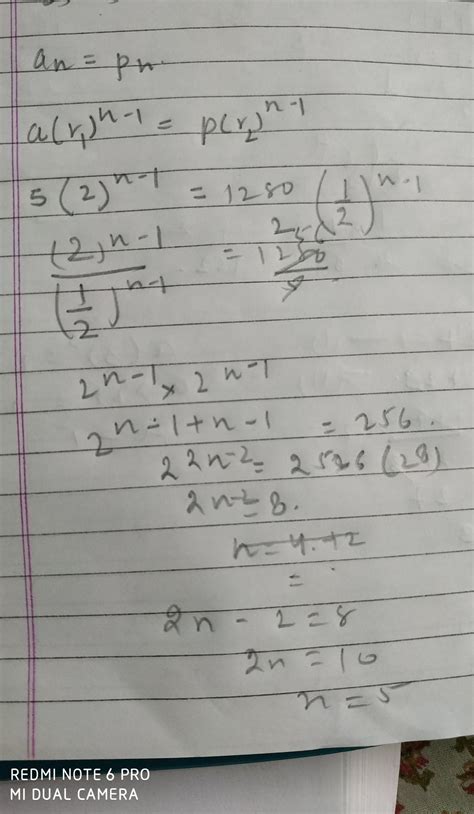 an = pn.
a(r₁)ⁿ⁻¹ = p(r₂)ⁿ⁻¹
5(2)ⁿ⁻¹ = 1280 (1/2)ⁿ⁻¹
(2)ⁿ⁻¹ / (1/2)ⁿ⁻¹ = 1280 / 5 256
2ⁿ⁻¹ × 2ⁿ⁻¹
2ⁿ⁻¹⁺ⁿ⁻¹ = 256.
2²ⁿ⁻² = 2526 (28)
2n-2 = 8.
n = 4.+2
=
2n - 2 = 8
2n = 10
n = 5
REDMI NOTE 6 PRO
MI DUAL CAMERA